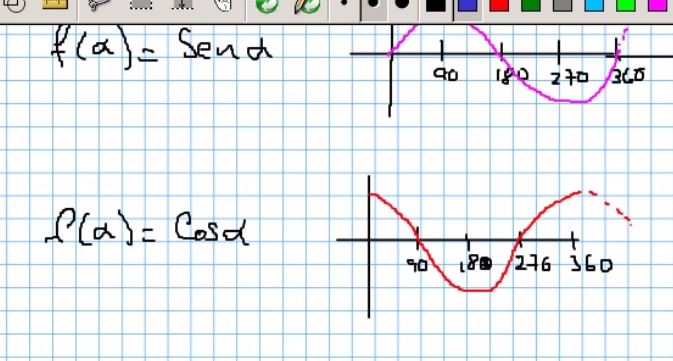 f(α) = Sen α
90 180 270 360
f(α) = Cos α
90 180 270 360